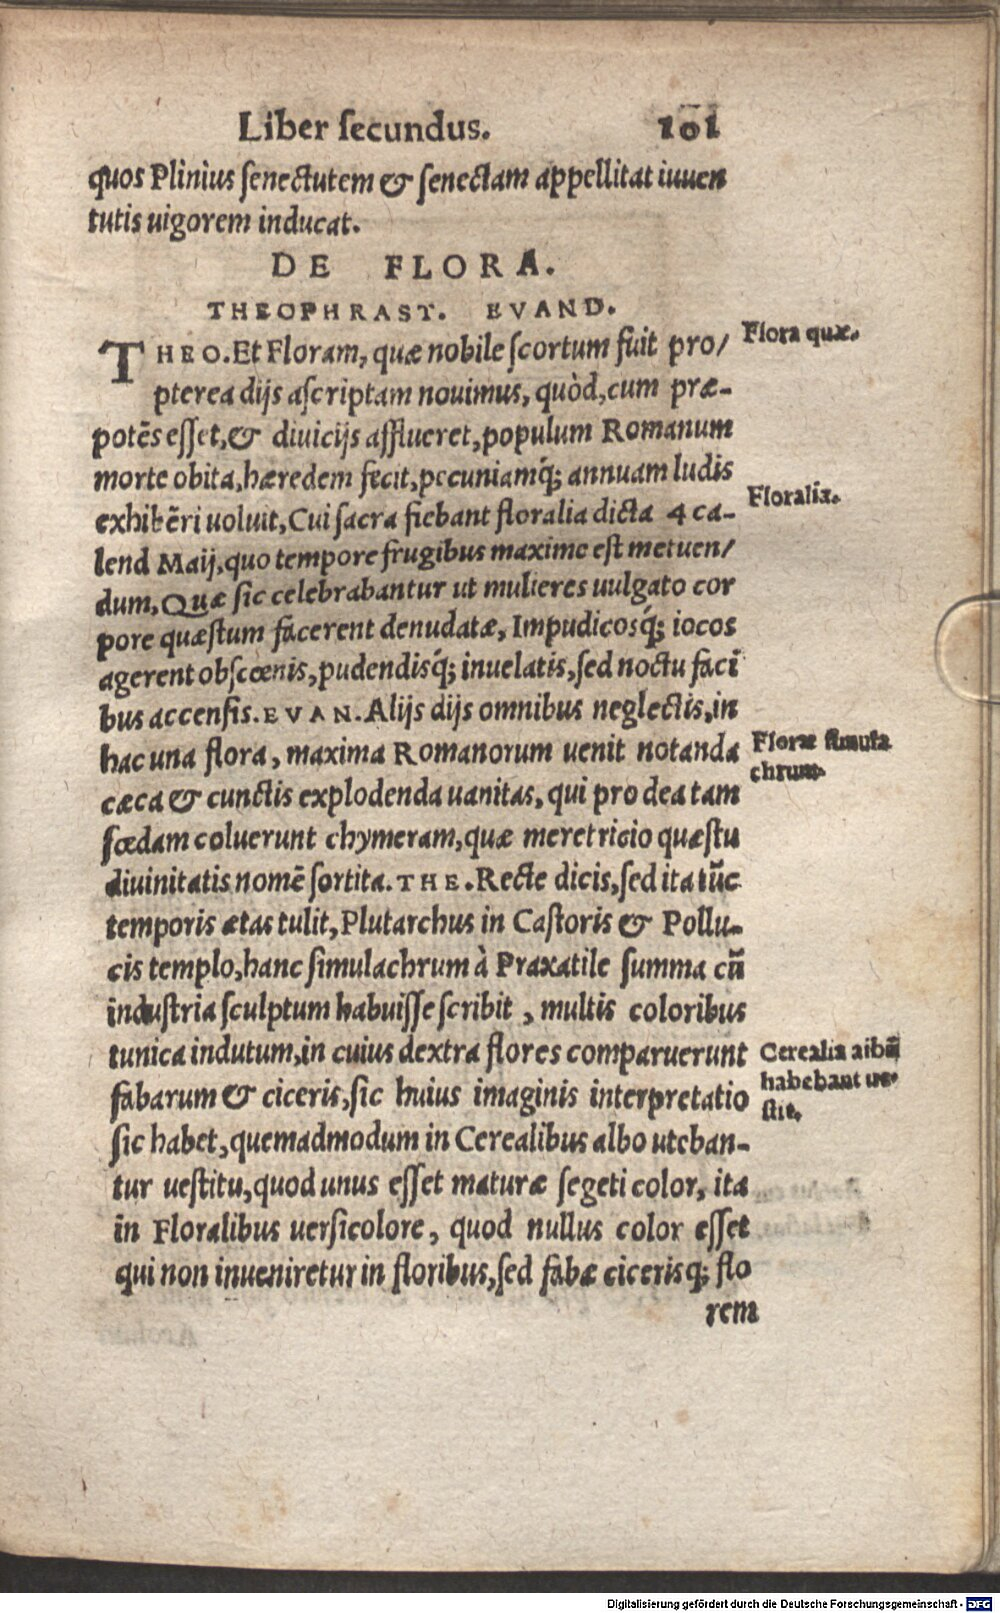 Liber secundus. 101
quos Plinius senectutem & senectam appellitat iuuen
tutis uigorem inducat.
DE FLORA.
THEOPHRAST. EVAND.
THEO. Et Floram, quæ nobile scortum fuit pro/
pterea dijs ascriptam nouimus, quòd, cum præ-
potēs esset, & diuicijs afflueret, populum Romanum
morte obita, hæredem fecit, pecuniamq́; annuam ludis
exhibēri uoluit, Cui sacra fiebant floralia dicta 4 ca-
lend Maij, quo tempore frugibus maxime est metuen/
dum, Quæ sic celebrabantur ut mulieres uulgato cor
pore quæstum facerent denudatæ, Impudicosq́; iocos
agerent obscœnis, pudendisq́; inuelatis, sed noctu faci
bus accensis. EVAN. Alijs dijs omnibus neglectis, in
hac una flora, maxima Romanorum uenit notanda
cæca & cunctis explodenda uanitas, qui pro dea tam
fœdam coluerunt chymeram, quæ meretricio quæstu
diuinitatis nomē sortita. THE. Recte dicis, sed ita tūc
temporis ætas tulit, Plutarchus in Castoris & Pollu-
cis templo, hanc simulachrum à Praxatile summa cū
industria sculptum habuisse scribit, multis coloribus
tunica indutum, in cuius dextra flores comparuerunt
fabarum & ciceris, sic huius imaginis interpretatio
sic habet, quemadmodum in Cerealibus albo uteban-
tur uestitu, quod unus esset maturæ segeti color, ita
in Floralibus uersicolore, quod nullus color esset
qui non inueniretur in floribus, sed fabæ cicerisq; flo
rem
Flora quæ.
Floralia.
Floræ simula
chrum.
Cerealia albū
habebant ue-
stit.
Digitalisierung gefördert durch die Deutsche Forschungsgemeinschaft - DFG